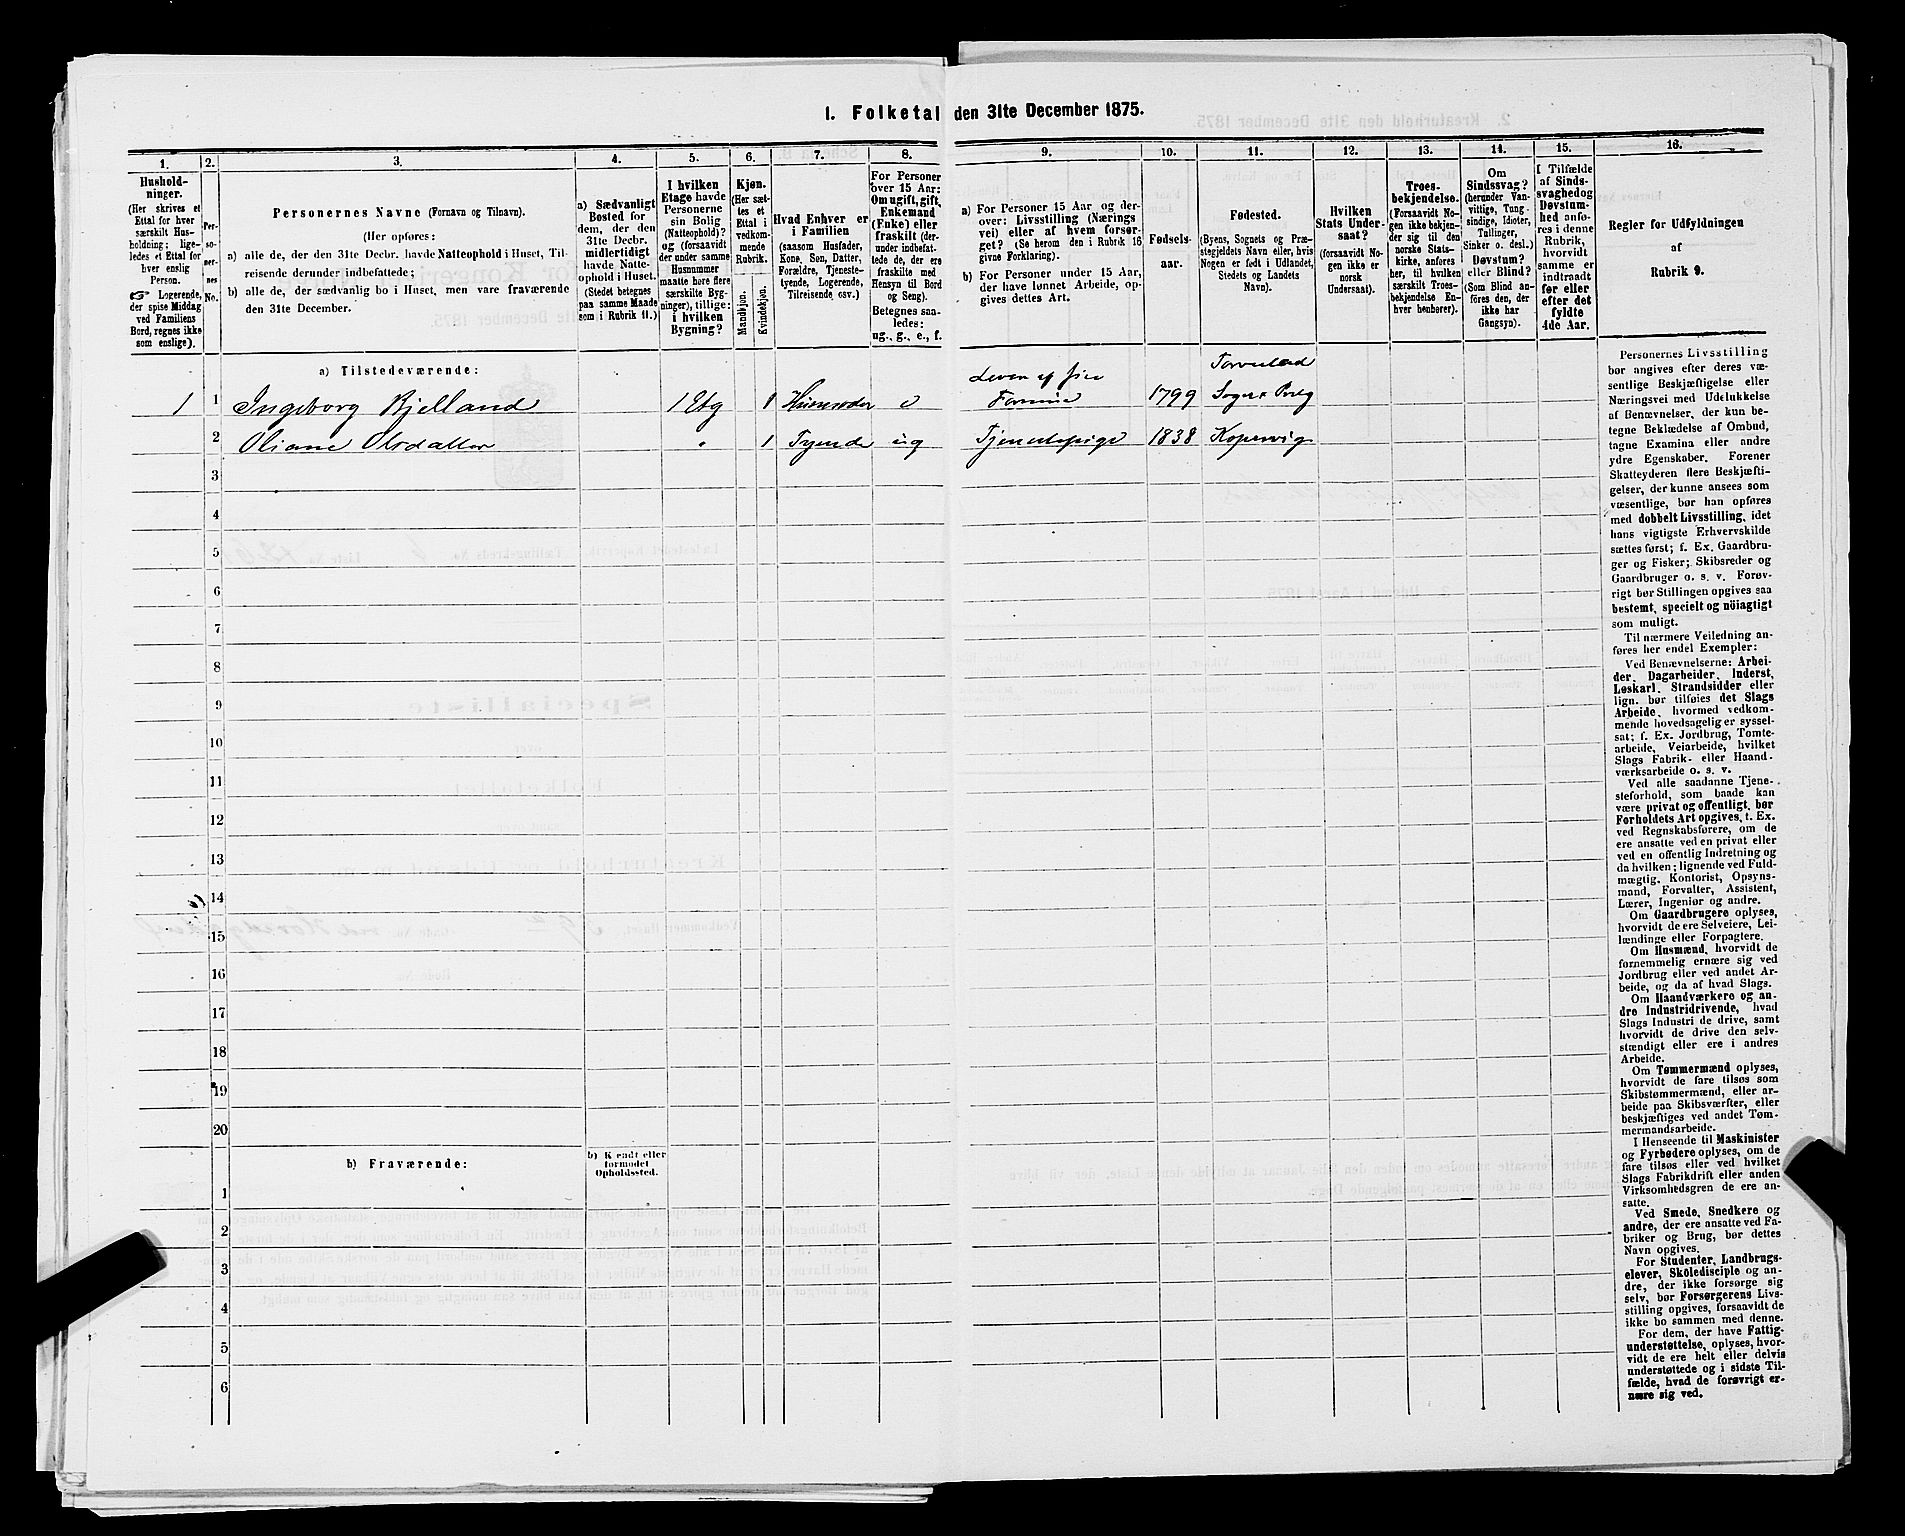 1. Folketal den 31te December 1875.
1.
2.
3.
4.
5.
6.
7.
8.
9.
10.
11.
12.
13.
14.
15.
16.
Hushold-
ninger.
(Her skrives et
Ettal for hver
særskilt Hus-
holdning; lige-
ledes et Ettal for
hver enslig
Person.
☞ Logerende,
der spise Middag
ved Familiens
Bord, regnes ikke
som enslige).
Per-
so-
per-
nes
No.
Personernes Navne (Fornavn og Tilnavn).
(Her opføres:
a) alle de, der den 31te Decbr. havde Natteophold i Huset, Til-
reisende derunder indbefattede;
b) alle de, der sædvanlig bo i Huset, men vare fraværende
den 31te December.
a) Sædvanligt
Bosted for
dem, der den
31te Decbr.
midlertidigt
havde Natte-
ophold i Huset.
(Stedet betegnes
paa samme Maade
som i Rubrik 11.)
I hvilken
Etage havde
Personerne
sin Bolig
(Natteophold)?
og (forsaavidt
der under samme
Husnummer
maatte høre flere
særskilte Byg-
ninger), tillige:
i hvilken
Bygning?
Kjøn.
(Her sæt-
tes et
Ettal i
vedkom-
mende
Rubrik.
Mandkjøn.
Kvindekjøn.
Hvad Enhver er
i Familien
(saasom Husfader,
Kone, Søn, Datter,
Forældre, Tjeneste-
tyende, Logerende,
Tilreisende, osv.)
For Personer
over 15 Aar:
Om ugift, gift,
Enkemand
(Enke) eller
fraskilt (der-
under indbefat-
tede de, der ere
fraskilte med
Hensyn til Bord
og Seng).
Betegnes saa-
ledes:
ug., g., e., f.
a) For Personer 15 Aar og der-
over: Livsstilling (Nærings
vei) eller af hvem forsør-
get? (Se herom den i Rubrik 16
givne Forklaring).
b) For Personer under 15 Aar,
der have lønnet Arbeide, op-
gives dettes Art.
Fødsels-
aar.
Fødested.
(Byens, Sognets og Præ-
stegjeldets Navn eller, hvis
Nogen er født i Udlandet,
Stedets og Landets
Navn).
Hvilken
Stats Under-
saat?
(forsaavidt No-
gen ikke er
norsk
Undersaat).
Troes-
bekjendelse.
(Forsaavidt No-
gen ikke bekjen-
der sig til den
norske Stats-
kirke, anføres
her, til hvilken
særskilt Troes-
bekjendelse En-
hver henhører).
Om
Sindssvag?
(herunder Van-
vittige, Tung-
sindige, Idioter,
Tullinger,
Sinker o. desl.)
Døvstum?
eller Blind?
(Som Blind an-
føres den, der
ikke har
Gangsyn).
I Tilfælde
af Sinds-
svaghed og
Døvstum-
hed anfø-
res i denne
Rubrik,
hvorvidt
samme er
indtraadt
før eller
efter det
fyldte
4de Aar.
Regler for Udfyldningen
af
Rubrik 9.
a) Tilstedeværende:
1 1 Ingeborg Kjelland 1 Etg 1 e Leven af sin Formue 1799 Torvestad Sogn & Prstg
2 Oliane Olsdatter " 1 Tyende ug Tjenestepige 1838 Kopervig
3
4
5
6
7
8
9
10
11
12
13
14
15
16
17
18
19
20
b) Fraværende:
b) Kendt eller
formodet
Opholdssted.
1
2
3
4
5
6
Personernes Livsstilling
bør angives efter deres væ-
sentlige Beskjæftigelse eller
Næringsvei med Udelukkelse
af Benævnelser, der kun be-
tegne Beklædelse af Ombud,
tagne Examina eller andre
ydre Egenskaber. Forener
Skatteyderen flere Beskjæfti-
gelser, der kunne ansees som
væsentlige, bør han opføres
med dobbelt Livsstilling, idet
hans vigtigste Erhvervskilde
sættes først; f. Ex. Gaardbru-
ger og Fisker; Skibsreder og
Gaardbruger o. s. v. Forøv-
rigt bør Stillingen opgives saa
bestemt, specielt og nöiagtigt
som muligt.
Til nærmere Veiledning an-
føres her endel Exempler:
Ved Benævnelserne: Arbei-
der, Dagarbeider, Inderst,
Løskarl, Strandsidder eller
lign. bør tilføies det Slags
Arbeide, hvormed vedkom-
mende hovedsagelig er syssel-
sat; f. Ex. Jordbrug, Tomte-
arbeide, Veiarbeide, hvilket
Slags Fabrik- eller Haand-
værksarbeide o. s. v.
Ved alle saadanne Tjene-
steforhold, som baade kan
være privat og offentligt, bør
Forholdets Art opgives, t. Ex.
ved Regnskabsførere, om de
ere ansatte ved en privat eller
ved en offentlig Indretning og
da hvilken; lignende ved Fuld-
mægtig, Kontorist, Opsyns-
mand, Forvalter, Assistent,
Lærer, Ingeniør og andre.
Om Gaardbrugere oplyses,
hvorvidt de ere Selveiere, Lei-
lændinge eller Forpagtere.
Om Husmænd, hvorvidt de
fornemmelig ernære sig ved
Jordbrug eller ved andet Ar-
beide, og da af hvad Slags.
Om Haandværkere og an-
dre Industridrivende, hvad
Slags Industri de drive, samt
hvorvidt de drive den selv-
stændigt eller ere i andres
Arbeide.
Om Tømmermænd oplyses,
hvorvidt de fare tilsøs som
Skibstømmermænd, eller ar-
beide paa Skibsværfter, eller
beskjæftiges ved andet Tøm-
mermandsarbeide.
I Henseende til Maskinister
og Fyrbødere oplyses, om de
fare tilsøs eller ved hvilket
Slags Fabrikdrift eller anden
Virksomhedsgren de ere an-
satte.
Ved Smede, Snedkere og
andre, der ere ansatte ved Fa-
briker og Brug, bør dettes
Navn opgives.
For Studenter, Landbrugs-
elever, Skoledisciple og an-
dre, der ikke forsørge sig
selv, bør Forsørgerens Livs-
stilling opgives, forsaavidt de
ikke bo sammen med denne.
For dem, der have Fattig-
understøttelse, oplyses, hvor-
vidt de ere helt eller delvis
understøttede og i sidste Til-
fælde, hvad de forøvrigt er-
nære sig ved.